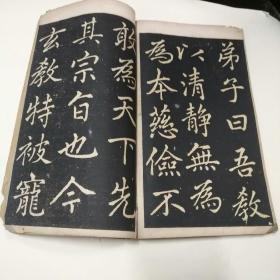 弟子曰吾教
以清静無為
為本慈儉不
敢為天下先
其宗旨也今
玄教特被寵